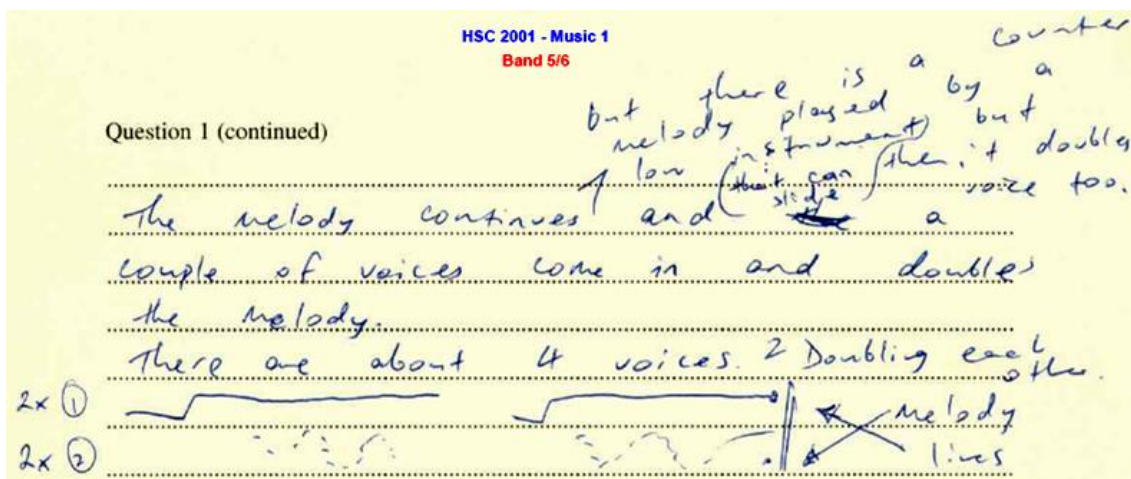 HSC 2001 - Music 1
Band 5/6
Question 1 (continued)
but there is a counter
melody played by a
low instrument) but
(that can
slide
then it doubles
voice too.
The melody continues and a
couple of voices come in and doubles
the melody.
There are about 4 voices. 2 Doubling each
other.
2x ①
2x ②
Melody
lines